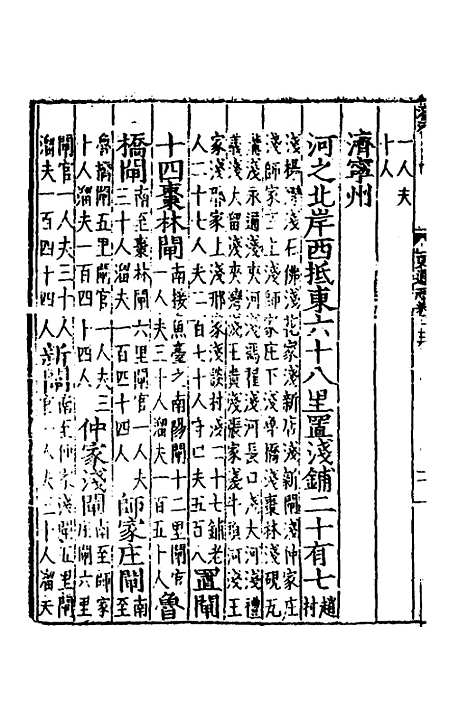 一人夫
十人
濟寧州
河之北岸西抵東六十八里置淺鋪二十有七趙村
淺楊淺石佛淺花家淺新店淺新閘淺仲家庄
淺師家庄上淺師家庄下淺魯橋淺棗林淺硯瓦
溝淺永通淺夾河淺馮翟淺河長口淺大河淺禮
義淺大留淺夾灣淺王貴淺張家淺牛頭河淺王
家淺邢家上淺邢家淺談村淺二十七鋪老
人二十七人夫二百七十人守口夫五百人置閘
十四棗林閘南接魚臺之南陽閘十二里閘官
一人夫三十人溜夫一百五十人魯
橋閘南至棗林閘六里閘官一人夫
三十人溜夫一百四十人師家庄閘南至
魯橋閘五里閘官一人夫三
十人溜夫一百四十四人仲家淺閘南至師家
庄閘六里
閘官一人夫三十人新閘南至仲家淺閘五里閘
溜夫一百四十四人官一人夫三十人溜夫